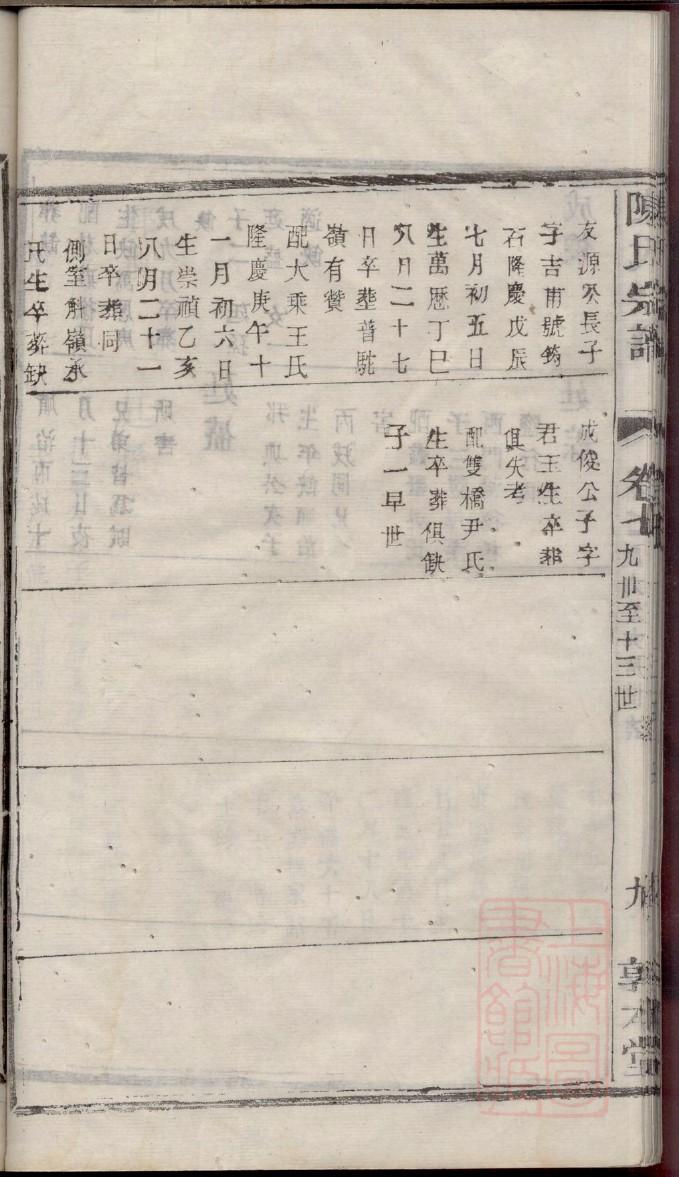 陳氏宗譜
卷七
九世至十三世
九
敦本堂
友源公長子
字吉甫號筠
石隆慶戊辰
七月初五日
生萬曆丁巳
八月二十七
日卒葬普駝
嶺有贊
配大乘王氏
隆慶庚午十
一月初六日
生崇禎乙亥
八月二十一
日卒葬同
側室斛嶺水
氏生卒葬缺
成俊公子字
君玉生卒葬
俱失考
配雙橋尹氏
生卒葬俱缺
子一早世
上海圖書館藏